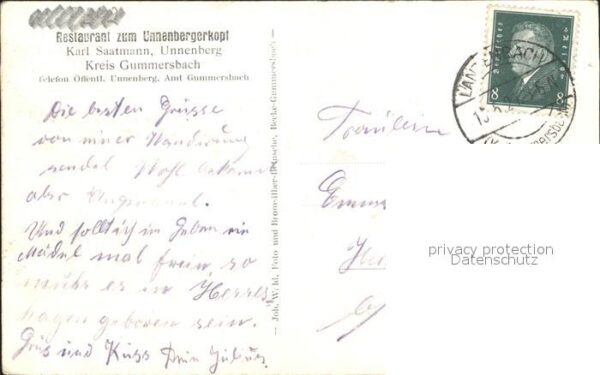 Restaurant zum Unnenbergerkopf
Karl Saatmann, Unnenberg
Kreis Gummersbach
Telefon Öffentl. Unnenberg, Amt Gummersbach
Die besten Grüsse
von einer Wanderung
sendet Wohl bekannt
aber
Und sollt ich im Leben ein
Mädel mal frein, so
muhs es in Herres
hagen geboren sein.
Grus und Kuss Dein Julius
Joh. W. ld. Foto und Bromsilber Becke-Gummersbach
Fräulein
Emma
Deutsches Reich
8 8
privacy protection
Datenschutz